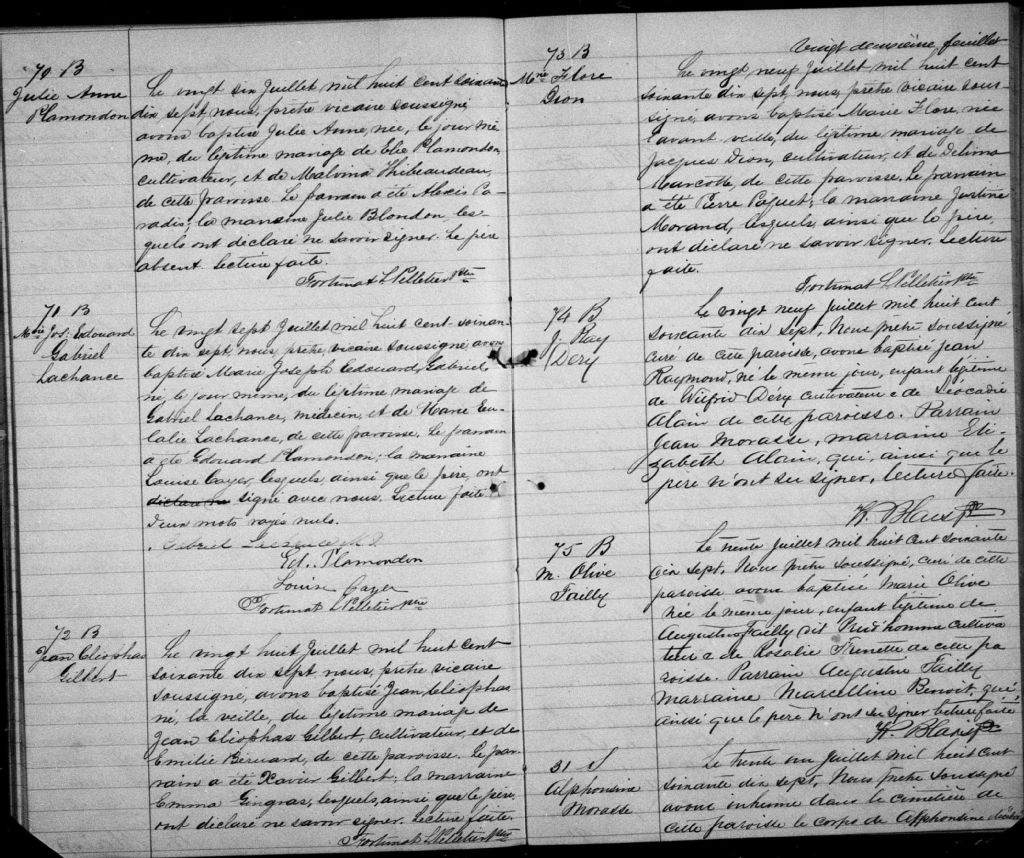 70 B
Julie Anne
Plamondon
Le vingt six Juillet mil huit cent soixante
dix sept, nous, prêtre vicaire soussigné,
avons baptisé Julie Anne, née, le jour mê-
me, du légitime mariage de Elie Plamondon,
cultivateur, et de Malvina Thibeaudeau,
de cette paroisse. Le parrain a été Alexis Pa-
radis; la marraine Julie Blondon, les
quels ont déclaré ne savoir signer. Le père
absent. Lecture faite.
Fortunat L Pelletier Ptre
71 B
Mie Jos. Edouard
Gabriel
Lachance
Le vingt sept Juillet mil huit cent soixan-
te dix sept, nous, prêtre, vicaire soussigné, avons
baptisé Marie Joseph Edouard Gabriel,
né, le jour même, du légitime mariage de
Gabriel Lachance, médecin, et de Marie Eu-
lalie Lachance, de cette paroisse. Le parrain
a été Edouard Plamondon; la marraine
Louise Cayer, lesquels, ainsi que le père, ont
déclaré ne signé avec nous. Lecture faite.
Deux mots rayés nuls.
Gabriel
Ed. Plamondon
Louise Cayer
Fortunat L Pelletier Ptre
72 B
Jean Cléophas
Gilbert
Le vingt huit Juillet mil huit cent
soixante dix sept nous, prêtre vicaire
soussigné, avons baptisé Jean Cléophas
né, la veille, du légitime mariage de
Jean Cléophas Gilbert, cultivateur, et de
Emilie Béruard, de cette paroisse. Le par-
rain a été Xavier Gilbert; la marraine
Emma Gingras, lesquels, ainsi que le père,
ont déclaré ne savoir signer. Lecture faite.
Fortunat L Pelletier Ptre
Vingt deuxième feuillet
73 B
Mrie Flore
Dion
Le vingt neuf Juillet mil huit cent
soixante dix sept, nous, prêtre vicaire sous-
signé, avons baptisé Marie Flore, née
l'avant veille, du légitime mariage de
Jacques Dion, cultivateur, et de Delima
Marcotte, de cette paroisse. Le parrain
a été Pierre Paquet; la marraine Justine
Morand, lesquels, ainsi que le père,
ont déclaré ne savoir signer. Lecture
faite.
Fortunat L Pelletier Ptre
74 B
J. Ray
Dery
Le vingt neuf Juillet mil huit cent
soixante dix sept, Nous prêtre soussigné
curé de cette paroisse, avons baptisé Jean
Raymond, né le même jour, enfant légitime
de Wilfrid Dery cultivateur & de Léocadie
Alain de cette paroisse. Parrain
Jean Morasse, marraine Eli-
zabeth Alain, qui, ainsi que le
père n'ont su signer, lecture faite.
H. Blais Ptre
75 B
M. Olive
Failly
Le trente Juillet mil huit cent soixante
dix sept, Nous prêtre soussigné, curé de cette
paroisse avons baptisé Marie Olive
née le même jour, enfant légitime de
Augustin Failly dit Prudhomme cultiva
teur & de Rosalie Frenette de cette pa
roisse. Parrain Augustin Failly
Marraine Marcelline Benoit, qui,
ainsi que le père n'ont su signer lecture faite
H. Blais Ptre
31 S
Alphonsine
Morasse
Le trente un Juillet mil huit cent
soixante dix sept, Nous prêtre soussigné
avons inhumé dans le cimetière de
cette paroisse le corps de Alphonsine décédée